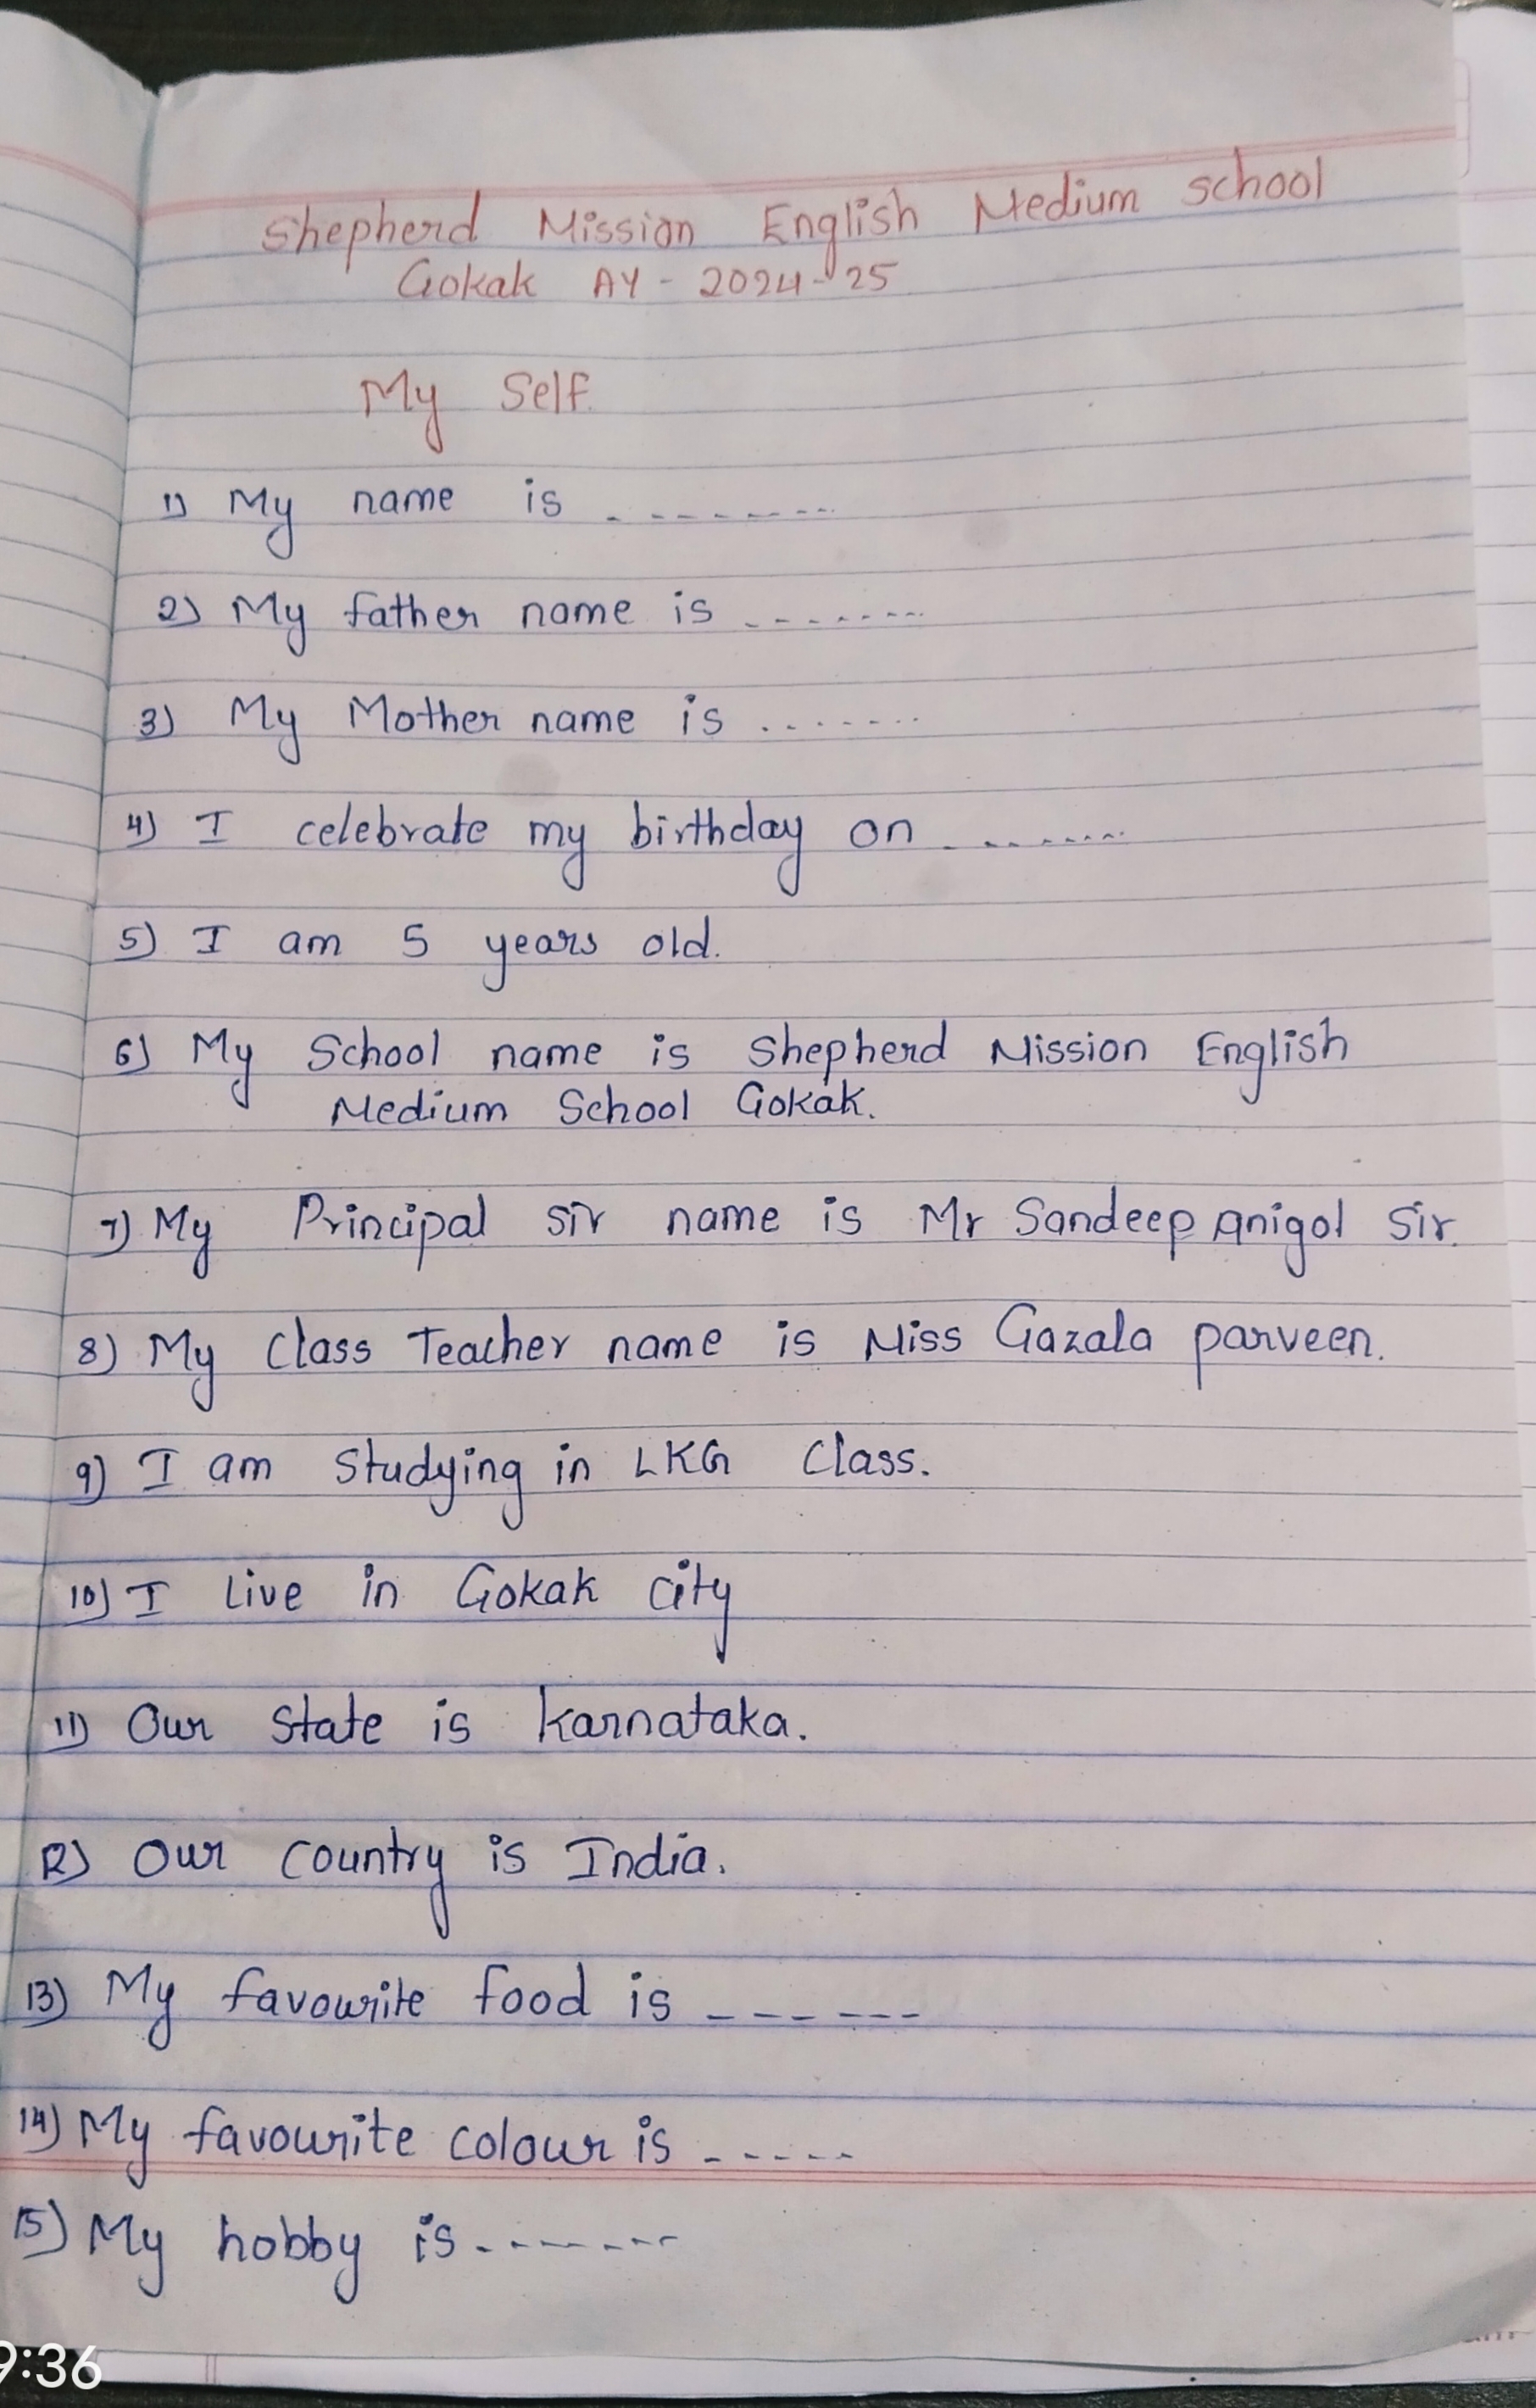 Shepherd Mission English Medium School
Gokak AY - 2024-25
My Self.
1) My name is ---------
2) My father name is --------
3) My Mother name is .......
4) I celebrate my birthday on ........
5) I am 5 years old.
6) My School name is Shepherd Mission English
Medium School Gokak.
7) My Principal sir name is Mr Sandeep anigol Sir.
8) My Class Teacher name is Miss Gazala parveen.
9) I am Studying in LKG Class.
10) I Live in Gokak city
11) Our State is Karnataka.
12) Our Country is India.
13) My favourite food is ------
14) My favourite colour is -----
15) My hobby is -------
9:36